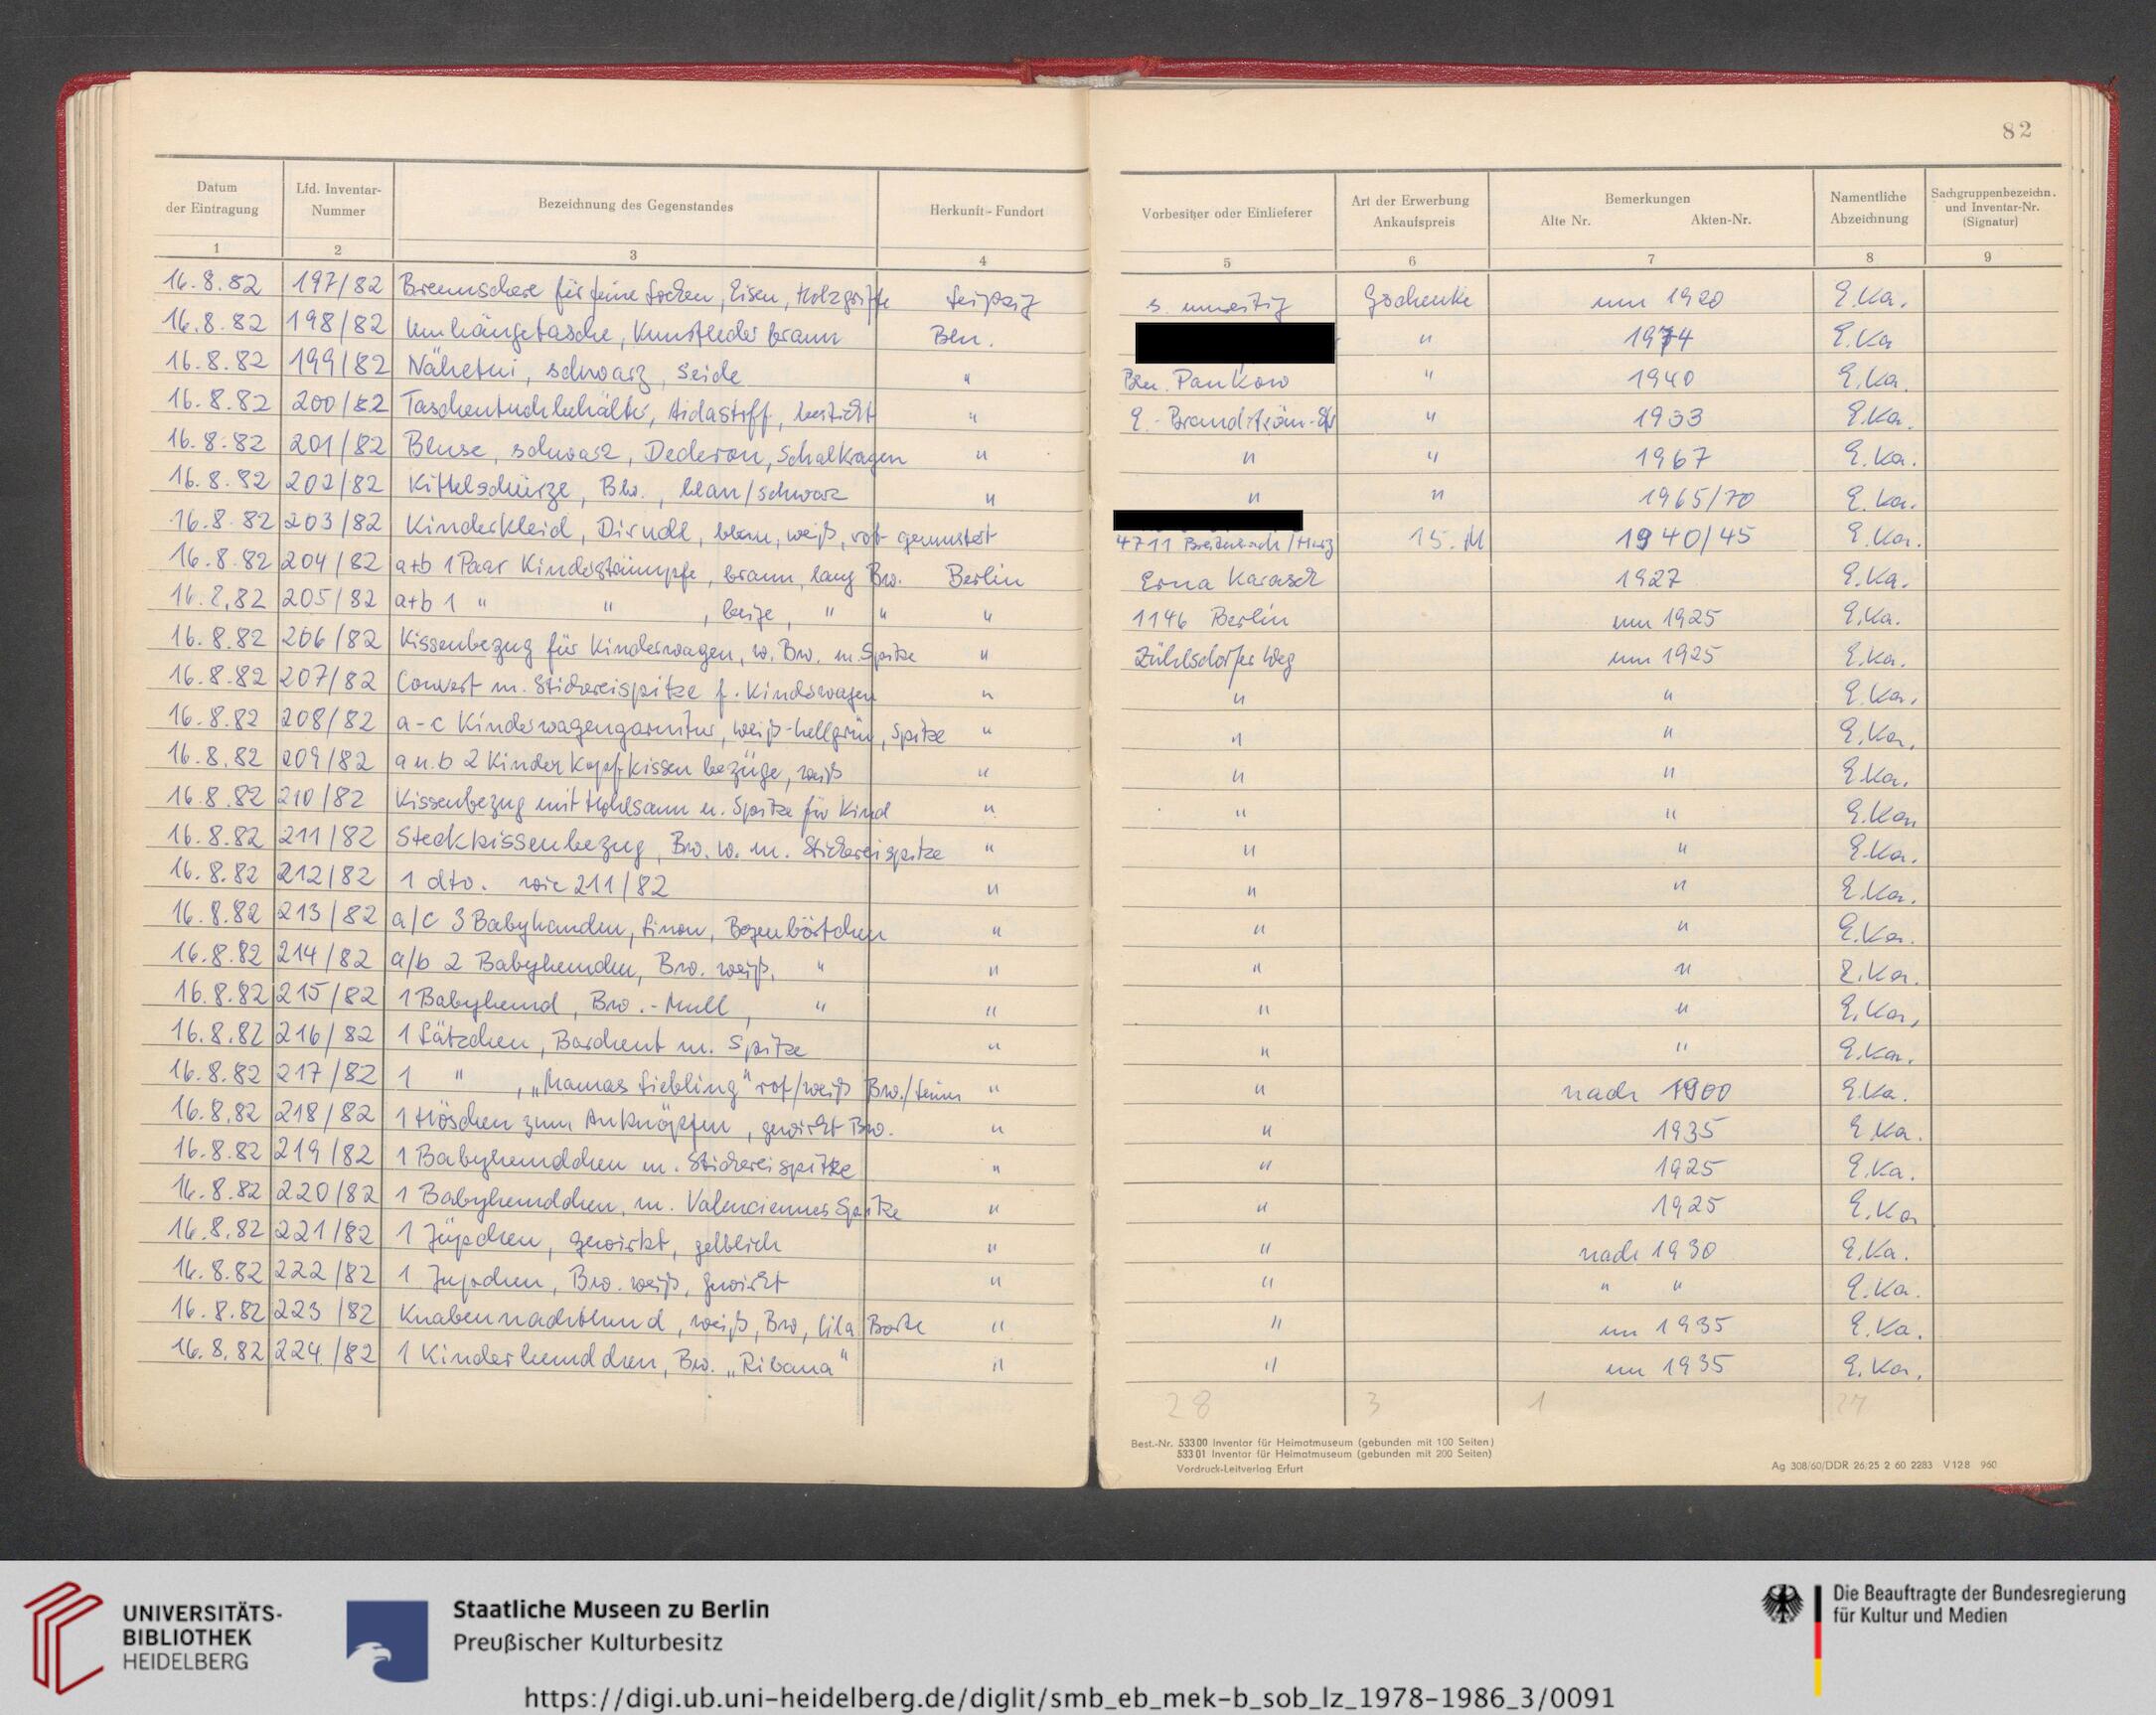 82
Datum der Eintragung | Lfd. Inventar-Nummer | Bezeichnung des Gegenstandes | Herkunft - Fundort | Vorbesitzer oder Einlieferer | Art der Erwerbung Ankaufspreis | Bemerkungen Alte Nr. Akten-Nr. | Namentliche Abzeichnung | Sachgruppenbezeichn. und Inventar-Nr. (Signatur)
1 | 2 | 3 | 4 | 5 | 6 | 7 | 8 | 9
16.8.82 | 197/82 | Brennschere für feine Locken, Eisen, Holzgriffe | Leipzig | s. umseitig | Geschenke | um 1920 | E.Ka.
16.8.82 | 198/82 | Umhängetasche, Kunstleder braun | Bln. | " | 1974 | E.Ka
16.8.82 | 199/82 | Nähetui, schwarz, Seide | " | Bln. Pankow | " | 1940 | E.Ka.
16.8.82 | 200/82 | Taschentuchbehälter, Aidastoff, bestickt | " | E.-Brandström-Str | " | 1933 | E.Ka.
16.8.82 | 201/82 | Bluse, schwarz, Dederon, Schalkragen | " | " | " | 1967 | E.Ka.
16.8.82 | 202/82 | Kittelschürze, Bw., blau/schwarz | " | " | " | 1965/70 | E.Ka.
16.8.82 | 203/82 | Kinderkleid, Dirndl, blau, weiß, rot gemustert | 4711 /Harz | 15.M | 1940/45 | E.Ka.
16.8.82 | 204/82 | a+b 1 Paar Kinderstrümpfe, braun, lang Bw. | Berlin | Erna Karasch | 1927 | E.Ka.
16.8.82 | 205/82 | a+b 1 " " , beige, " " | " | 1146 Berlin | um 1925 | E.Ka.
16.8.82 | 206/82 | Kissenbezug für Kinderwagen, w. Bw. m. Spitze | " | Zühlsdorfer Weg | um 1925 | E.Ka.
16.8.82 | 207/82 | Couvert m. Stickereispitze f. Kinderwagen | " | " | " | E.Ka.
16.8.82 | 208/82 | a-c Kinderwagengarnitur, weiß-hellgrün, Spitze | " | " | " | E.Ka.
16.8.82 | 209/82 | a u. b 2 Kinderkopfkissenbezüge, weiß | " | " | " | E.Ka.
16.8.82 | 210/82 | Kissenbezug mit Hohlsaum u. Spitze für Kind | " | " | " | E.Ka.
16.8.82 | 211/82 | Steckkissenbezug, Bw. w. m. Stickereispitze | " | " | " | E.Ka.
16.8.82 | 212/82 | 1 dto. wie 211/82 | " | " | " | E.Ka.
16.8.82 | 213/82 | a/c 3 Babyhemden, Linon, Bogenbörtchen | " | " | " | E.Ka.
16.8.82 | 214/82 | a/b 2 Babyhemden, Bw. weiß, " | " | " | " | E.Ka.
16.8.82 | 215/82 | 1 Babyhemd, Bw.-Mull, " | " | " | " | E.Ka.
16.8.82 | 216/82 | 1 Lätzchen, Barchent m. Spitze | " | " | " | E.Ka.
16.8.82 | 217/82 | 1 " , „Mamas Liebling" rot/weiß Bw./Leinen | " | " | nach 1900 | E.Ka.
16.8.82 | 218/82 | 1 Höschen zum Anknöpfen, gewirkt Bw. | " | " | 1935 | E.Ka.
16.8.82 | 219/82 | 1 Babyhemdchen m. Stickereispitze | " | " | 1925 | E.Ka.
16.8.82 | 220/82 | 1 Babyhemdchen, m. Valenciennes Spitze | " | " | 1925 | E.Ka
16.8.82 | 221/82 | 1 Jüpchen, gewirkt, gelblich | " | " | nach 1930 | E.Ka.
16.8.82 | 222/82 | 1 Jüpchen, Bw. weiß, gewirkt | " | " | " " | E.Ka.
16.8.82 | 223/82 | Knabennachthemd, weiß, Bw, lila Borte | " | " | um 1935 | E.Ka.
16.8.82 | 224/82 | 1 Kinderhemdchen, Bw. „Ribana" | " | " | um 1935 | E.Ka.
28 | 3 | 1 | 27
Best.-Nr. 53300 Inventar für Heimatmuseum (gebunden mit 100 Seiten)
53301 Inventar für Heimatmuseum (gebunden mit 200 Seiten)
Vordruck-Leitverlag Erfurt
Ag 308/60/DDR 26/25 2 60 2283 V128 960
UNIVERSITÄTS-
BIBLIOTHEK
HEIDELBERG
Staatliche Museen zu Berlin
Preußischer Kulturbesitz
Die Beauftragte der Bundesregierung
für Kultur und Medien
https://digi.ub.uni-heidelberg.de/diglit/smb_eb_mek-b_sob_lz_1978-1986_3/0091